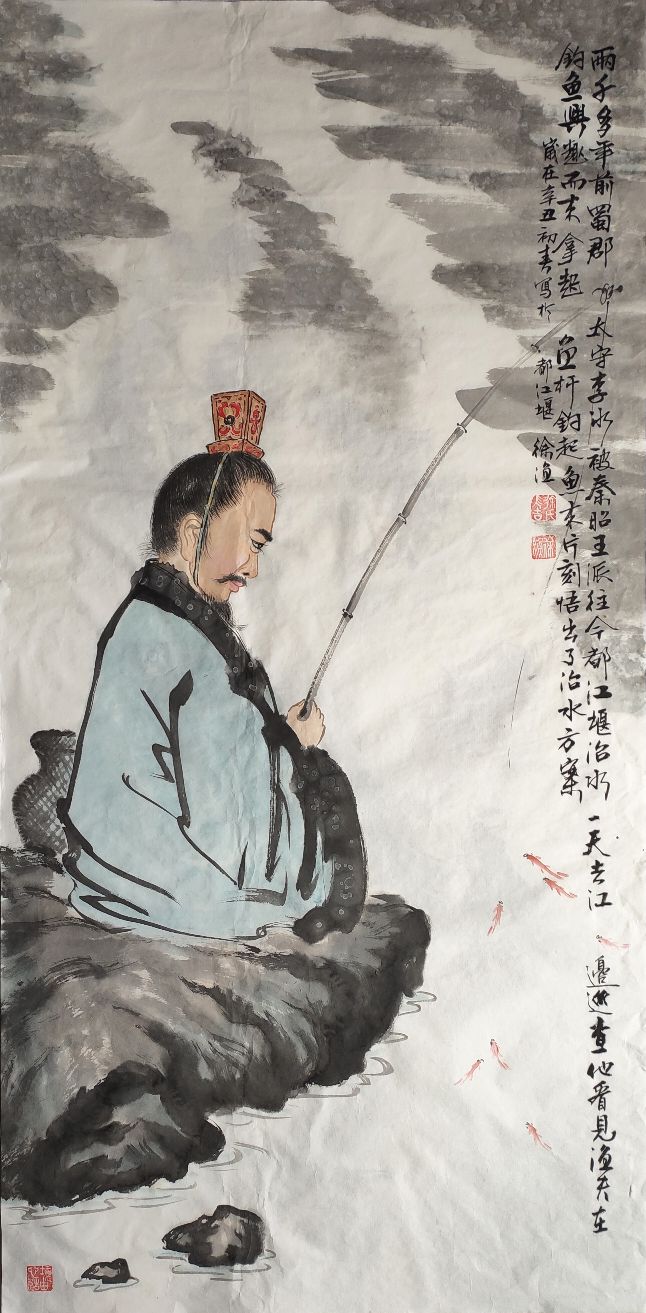 兩千多年前蜀郡太守李冰被秦昭王派往今都江堰治水一天去江邊巡查他看見漁夫在
釣魚興趣而来拿起魚杆釣起魚来片刻悟出了治水方案
歲在辛丑初春寫於都江堰徐渔